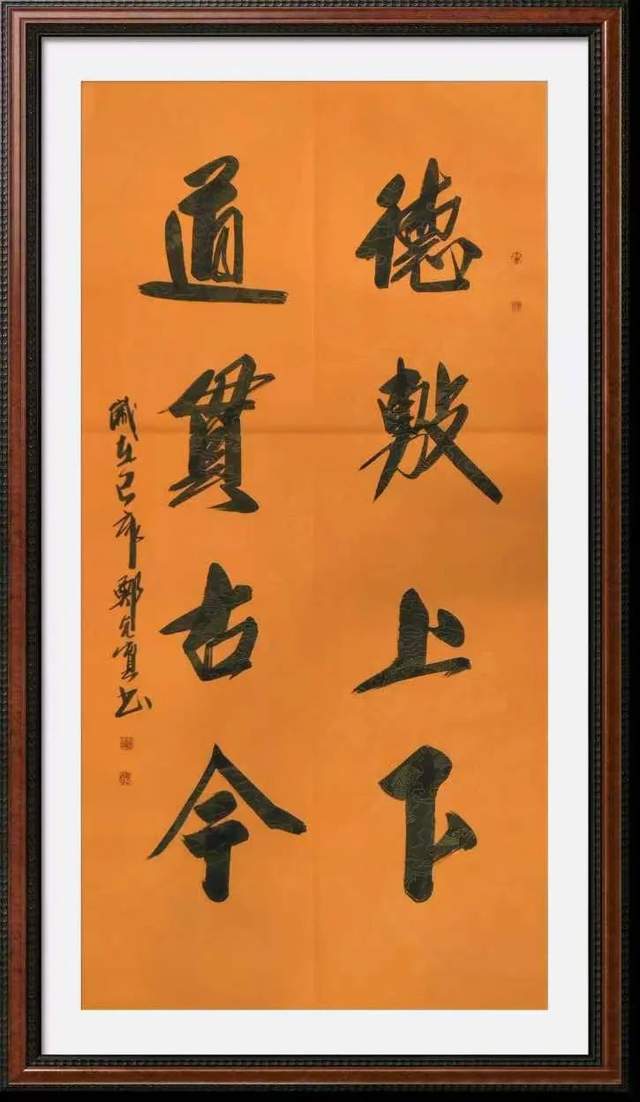 德敷上下
道貫古今
歲在己亥鄭書